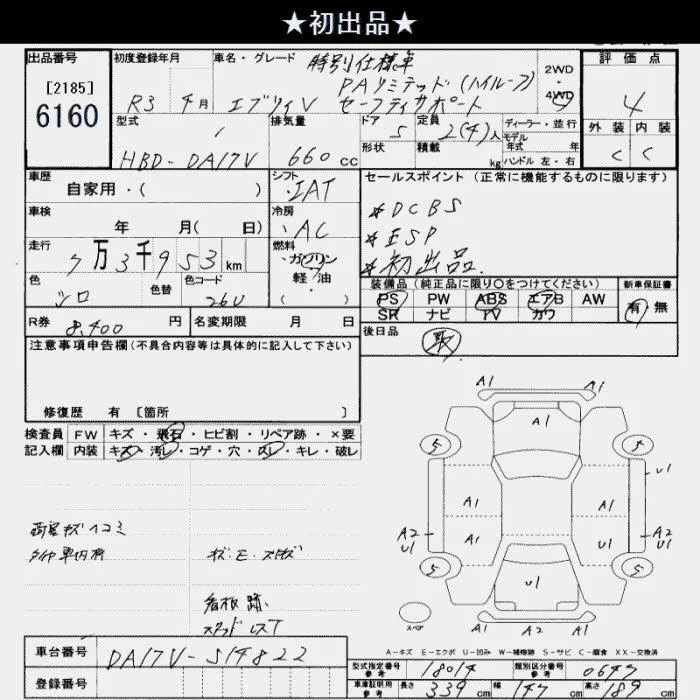 ★初出品★
出品番号 初度登録年月 車名・グレード 特別仕様車 評価点
[2185] PAリミテッド(ハイルーフ) 2WD・4WD
6160 R3 4月 エブリィV セーフティサポート 4
型式 排気量 ドア 5 定員 2(4)人 ディーラー・並行 外装 内装
モデル年式 年
HBD-DA17V 660cc 形状 積載 kg ハンドル 左・右 C C
車歴 シフト セールスポイント (正常に機能するものに限ります)
自家用・( ) IAT
車検 冷房 *DCBS
年 月( 日) AC *ESP
走行 燃料 *初出品.
7万3千953km ガソリン・軽油・( )
色 色替 色コード 装備品 (純正品に限り○をつけてください) 新車保証書
シロ 26U PS PW ABS エアB AW 有・無
SR ナビ TV カワ
R券 8,400円 名変期限 月 日 後日品
注意事項申告欄(不具合内容等は具体的に記入して下さい) 取
修復歴 有 [箇所 ]
検査員記入欄 FW キズ・飛石・ヒビ割・リペア跡・×要
内装 キズ・汚レ・コゲ・穴・スレ・キレ・破レ
荷室キズヘコミ
キズ・E・
看板跡.
A1 A1
A1
5 5
U1
A1 A1
A2 U1 A1 U1 A2 U1
5 5
U1
A1 A2 A1
A-キズ E-エクボ U-凹み W-補修跡 S-サビ C-腐食 XX-交換済
車台番号 DA17V-514822
登録番号
型式指定番号 参考 18014 類別区分番号 参考 0647
車庫証明用 参考 長さ 339cm 幅 147cm 高さ 189cm